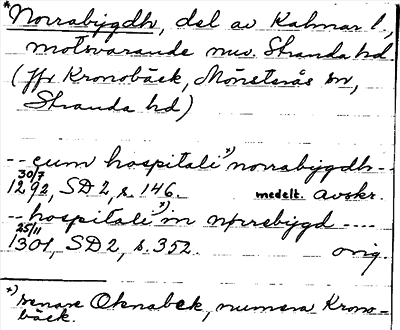 *Norrabygdh, del av Kalmar l.,
motsvarande nuv. Stranda hd.
(jfr Kronobäck, Mönsterås sn,
Stranda hd)
-- cum hospitali *) norrabygdh --
30/7 1292, SD 2, s. 146. medelt. avskr.
-- hospitali *) in norrebygd ----
25/11 1301, SD 2, s. 352. orig.
*) senare Oknabek, numera Krono-
bäck.